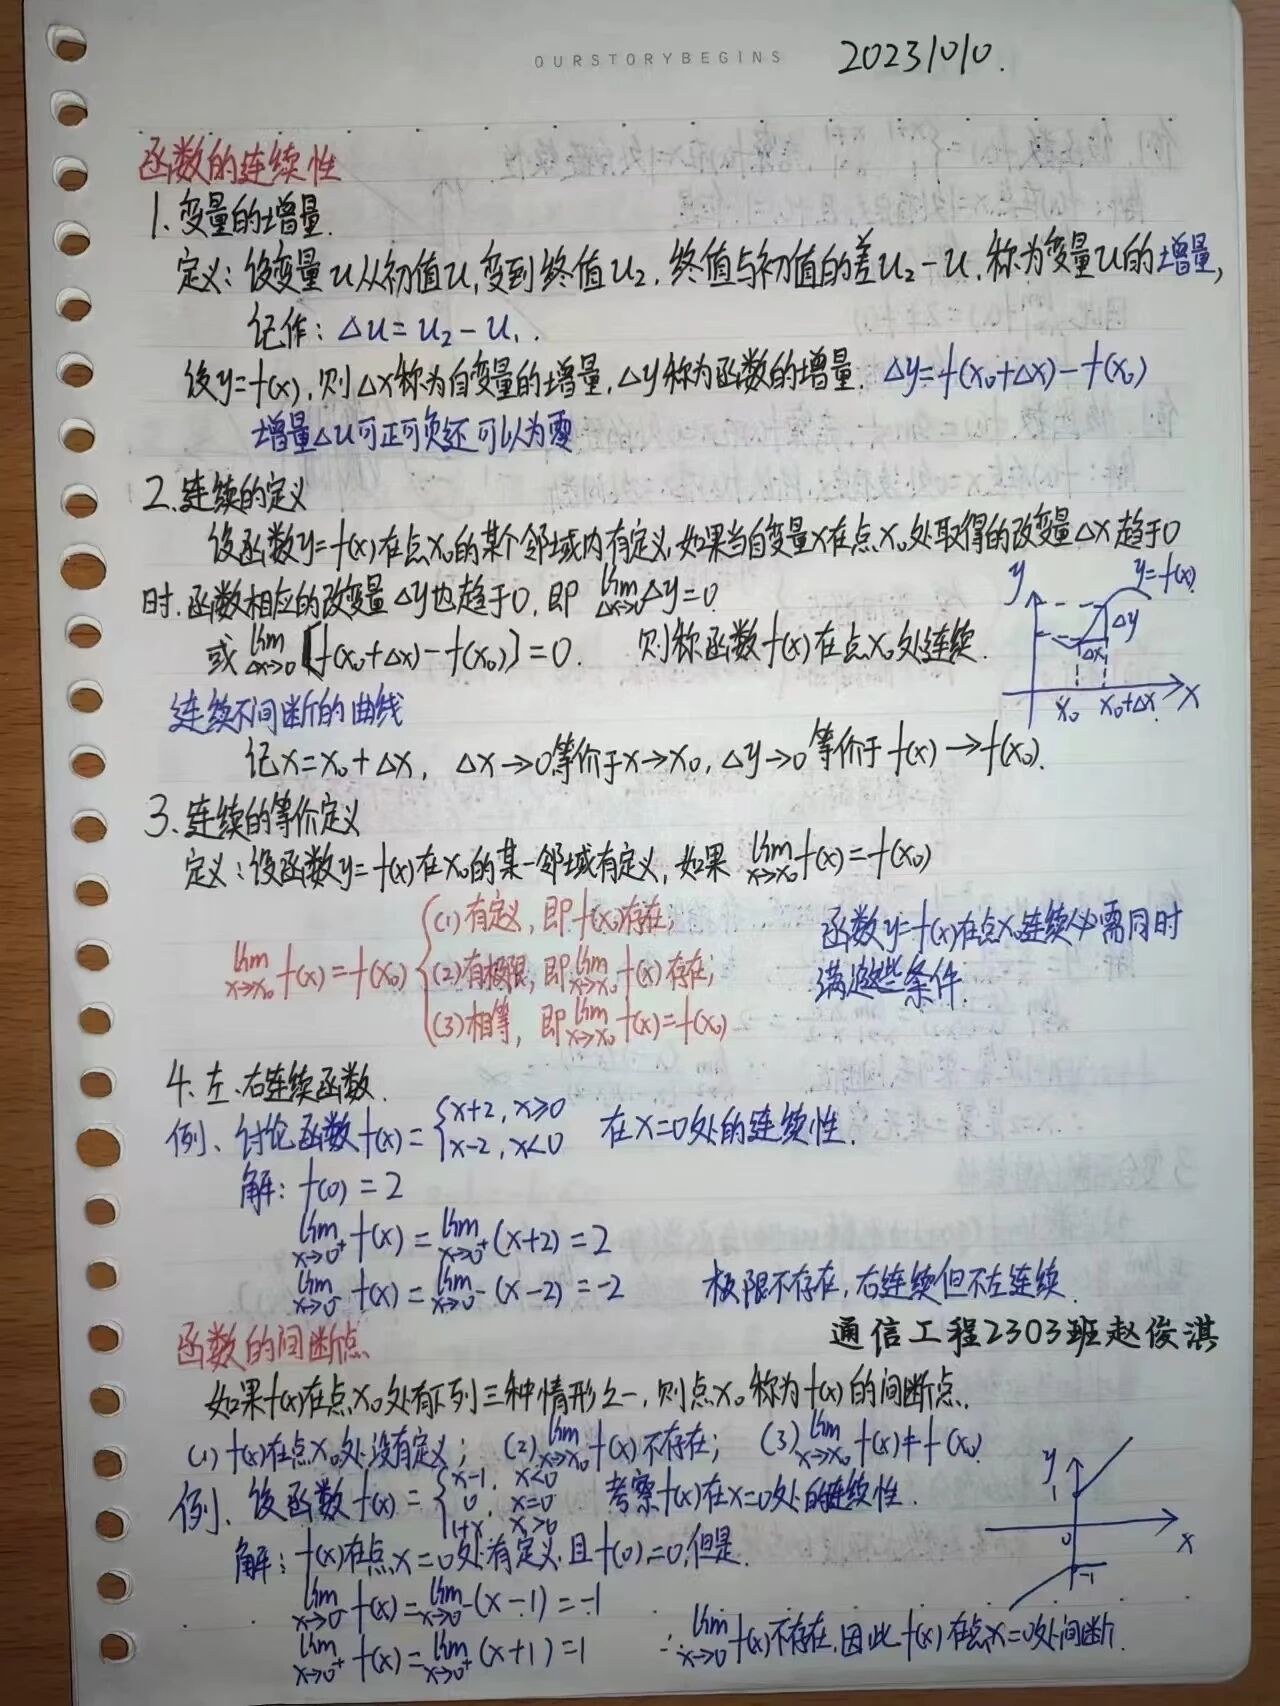 OURSTORYBEGINS
20231010.
函数的连续性
1.变量的增量.
定义:设变量u从初值u₁变到终值u₂,终值与初值的差u₂-u₁称为变量u的增量,
记作:△u=u₂-u₁.
设y=f(x),则△x称为自变量的增量,△y称为函数的增量. △y=f(x₀+△x)-f(x₀)
增量△u可正可负还可以为零
2.连续的定义
设函数y=f(x)在点x₀的某个邻域内有定义,如果当自变量x在点x₀处取得的改变量△x趋于0
时,函数相应的改变量△y也趋于0,即 lim△x→0 △y=0
或 lim△x→0 [f(x₀+△x)-f(x₀)]=0. 则称函数f(x)在点x₀处连续.
y y=f(x)
△y
△x
x₀ x₀+△x x
连续不间断的曲线
记x=x₀+△x, △x→0等价于x→x₀,△y→0等价于f(x)→f(x₀).
3、连续的等价定义
定义:设函数y=f(x)在x₀的某一邻域有定义,如果 limx→x₀ f(x)=f(x₀)
(1)有定义,即f(x₀)存在;
limx→x₀ f(x)=f(x₀) { (2)有极限,即limx→x₀ f(x)存在;
(3)相等,即limx→x₀ f(x)=f(x₀)
函数y=f(x)在点x₀连续必需同时
满足这些条件.
4、左、右连续函数.
例、讨论函数f(x)={x+2,x≥0 x-2,x<0 在x=0处的连续性.
解:f(0)=2
limx→0⁺ f(x)=limx→0⁺(x+2)=2
limx→0⁻ f(x)=limx→0⁻(x-2)=-2 极限不存在,右连续但不左连续.
通信工程2303班赵俊淇
函数的间断点
如果f(x)在点x₀处有下列三种情形之一,则点x₀称为f(x)的间断点.
(1) f(x)在点x₀处没有定义; (2) limx→x₀ f(x)不存在; (3) limx→x₀ f(x)≠f(x₀)
例、设函数f(x)={x-1, x<0 0, x=0 1+x, x>0 考察f(x)在x=0处的连续性.
解:f(x)在点x=0处有定义,且f(0)=0,但是.
y
1
0 x
-1
limx→0⁻ f(x)=limx→0⁻(x-1)=-1
limx→0⁺ f(x)=limx→0⁺(x+1)=1 ∴limx→0 f(x)不存在,因此f(x)在点x=0处间断.